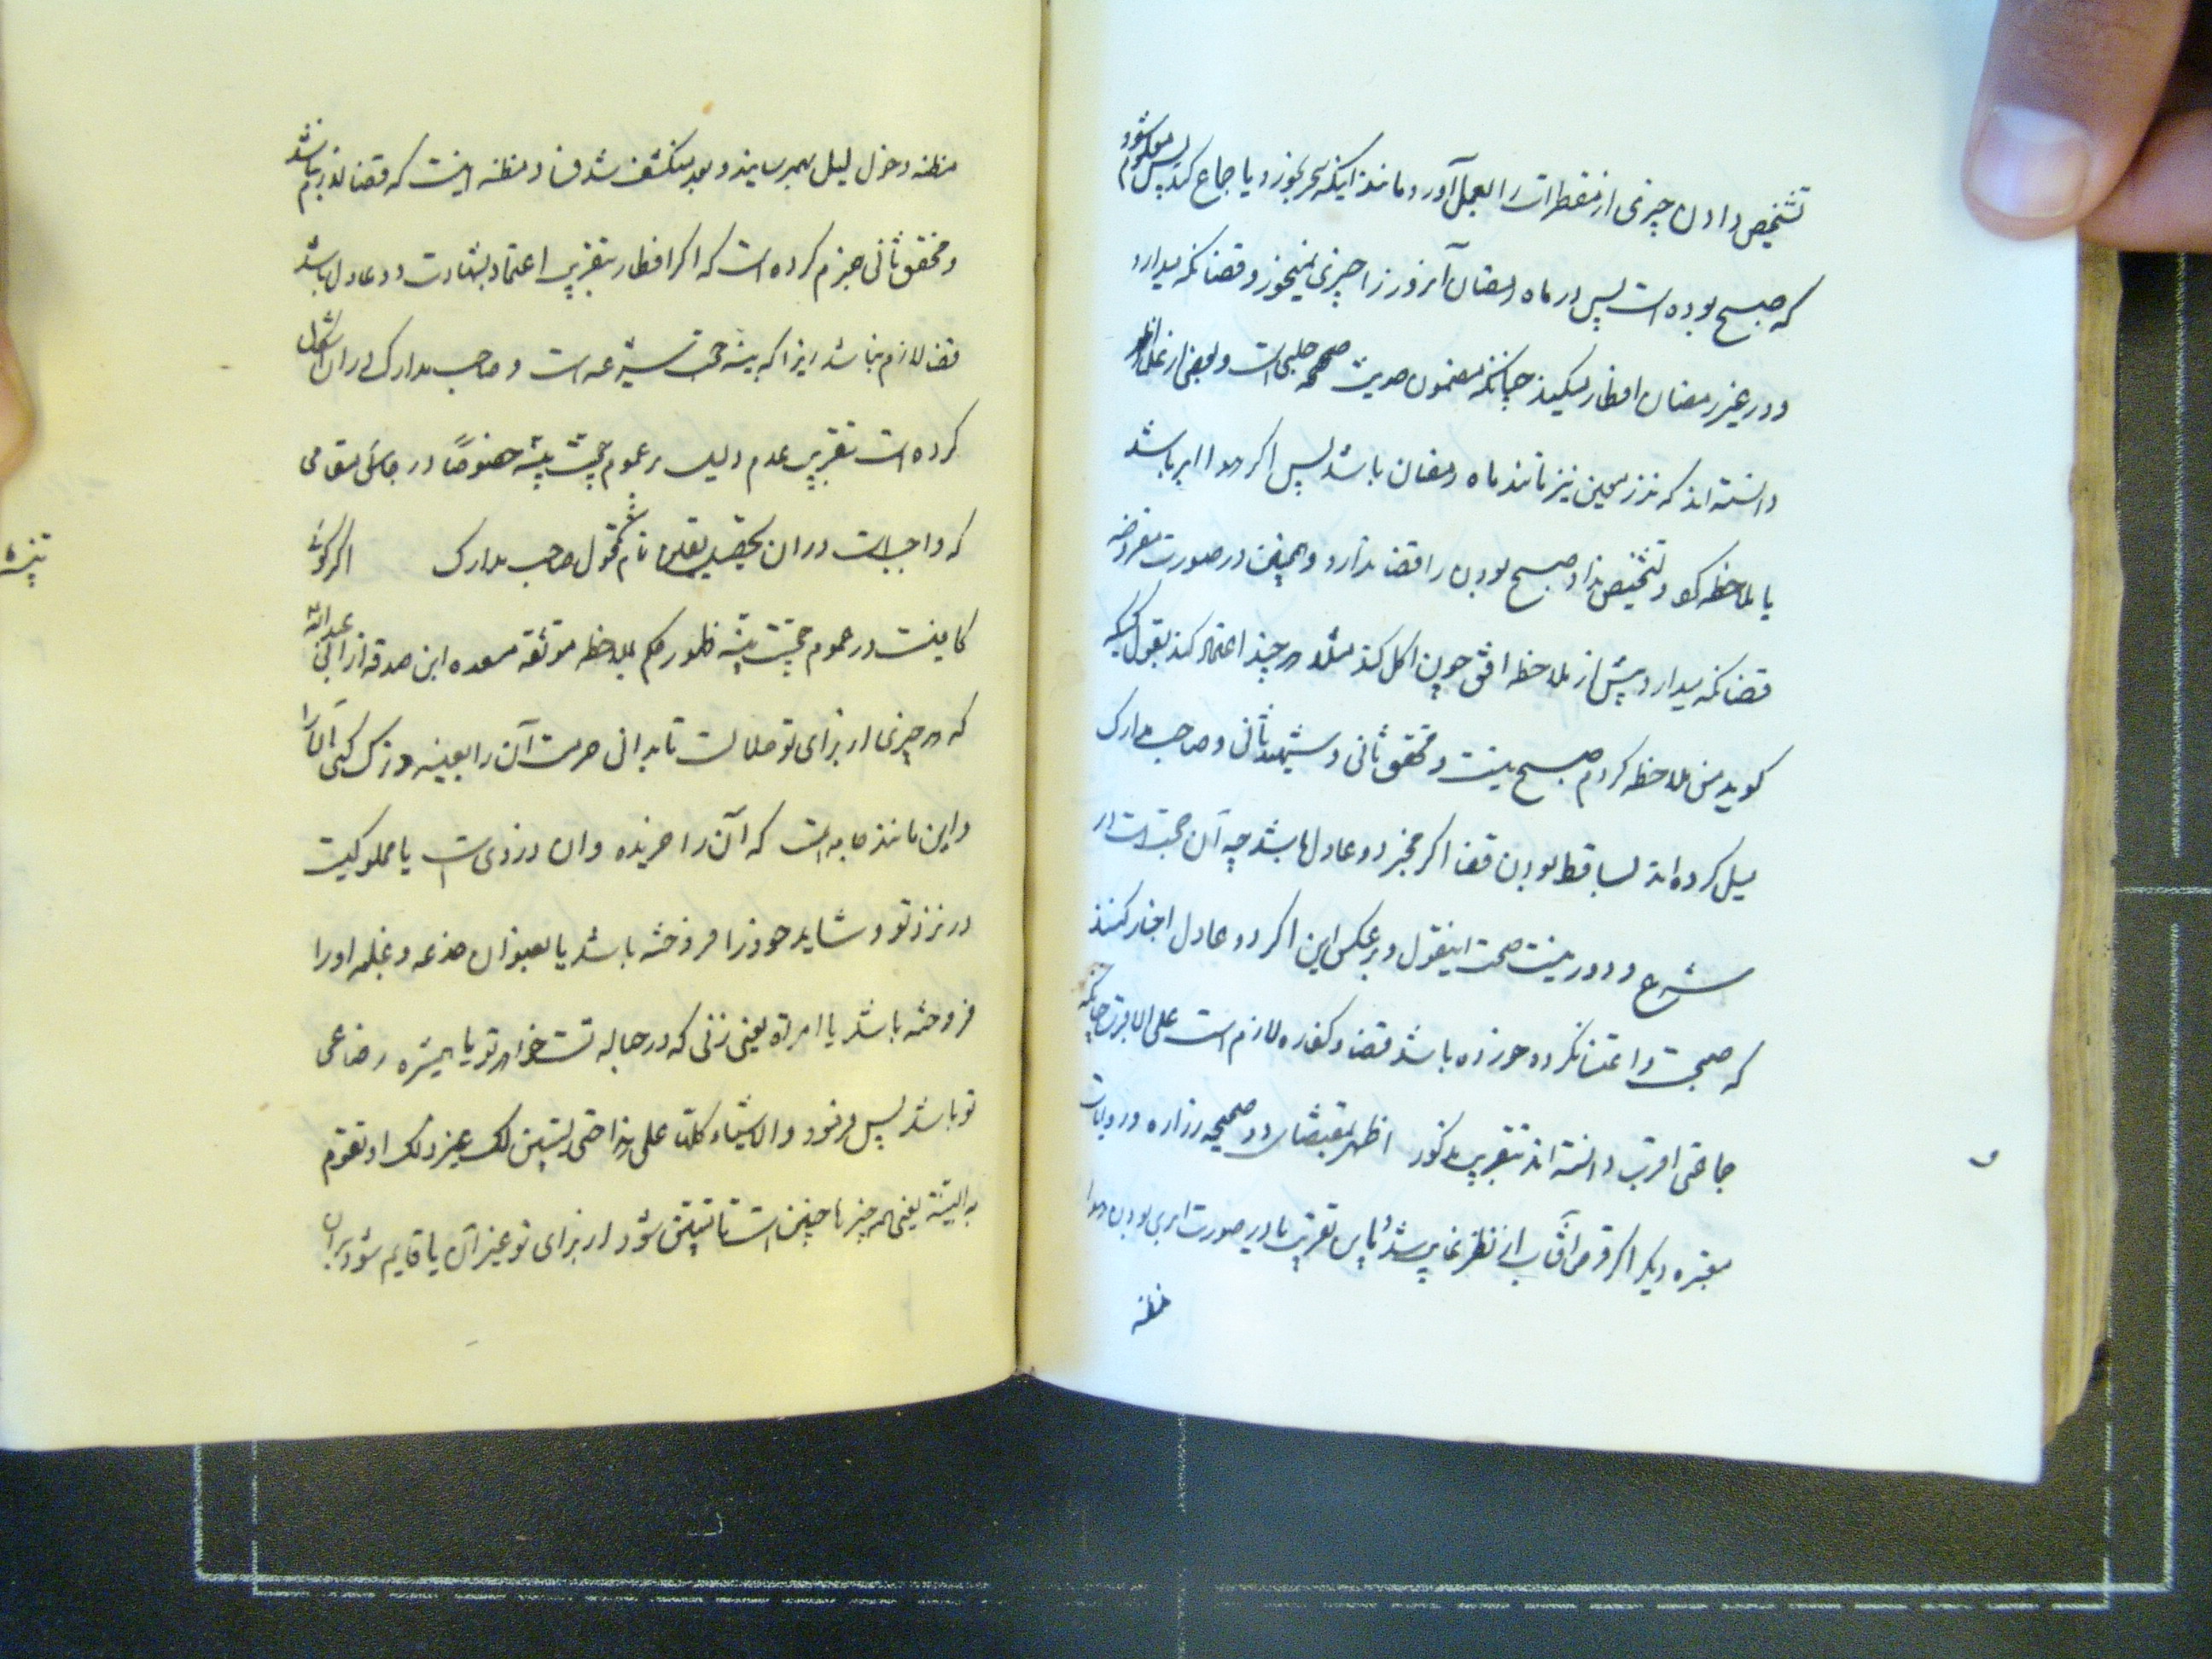 تشخیص دادن چیزی از مفطرات را بعمل آورد مانند اینکه سحر بخورد یا جماع کند پس معلوم شود
که صبح بوده است پس در ماه رمضان آنروز را چیزی نمیخورد و قضا نکه میدارد
و در غیر رمضان افطار میکند چنانکه مضمون حدیث صحیح حلبی است و بعضی از علما
دانسته اند که نذر معین نیز مانند ماه رمضان باشد پس اگر هوا ابر باشد
یا ملاحظه کرد و تشخیص نداد صبح بودن را قضا ندارد و همچنین در صورت مفروضه
قضا نکه میدارد پیش از ملاحظه افق چون اکل کند مثلا هر چند اعتماد کند بقول کسیکه
کوید من ملاحظه کردم صبح نیست و محقق ثانی و شهید ثانی و صاحب مدارک
میل کرده اند بساقط بودن قضا اگر مخبر دو عادل باشد چه آن حجتست در
شرع و دور نیست صحت اینقول و برعکس این اگر دو عادل اخبار کنند
که صبحست و اعتنا نکرده خورده باشد قضا و کفاره لازم است علی الاقرب چنانکه
جماعتی اقرب دانسته اند بتقریب مذکور اظهر بمقتضای دو صحیحه زراره و روایات
معتبره دیگر اگر قرص آفتاب از نظر غایب شد باین تقریب یا در صورت ابری بودن هوا
مظنه
مظنه دخول لیل بهمرسانید و بعد منکشف شد فساد مظنه اینست که قضا لازم نباشد
و محقق ثانی جزم کرده است که اگر افطار بتقریب اعتماد بشهادت دو عادل باشد
قضا لازم نباشد زیرا که بینه حجت شرعیه است و صاحب مدارک در ان اشکال
کرده است بتقریب عدم دلیل بر عموم حجیت بینه خصوصا در جائی مقامی
که واجبست در ان تحصیل یقین تمام شد قول صاحب مدارک اگر کوئی
کافیست در عموم حجیت بینه ظهور حکم بملاحظه موثقه مسعده ابن صدقه از ابی عبدالله
که هر چیزی از برای تو حلالست تا بدانی حرمت آن را بعینه و ترک کنی آنرا
و این مانند جامه است که آن را خریده و ان دزدی است یا مملوکیست
در نزد تو و شاید خود را فروخته باشد یا بعنوان خدعه و غلبه او را
فروخته باشد یا امراة یعنی زنی که در حباله تست خواهر تو یا همشیره رضاعی
تو باشد پس فرمود و الاشیاء کلها علی هذا حتی یستبین لک غیر ذلک او تقوم
به البینة یعنی همه چیزها چنین است تا متبین شود از برای تو غیر آن یا قایم شود بران